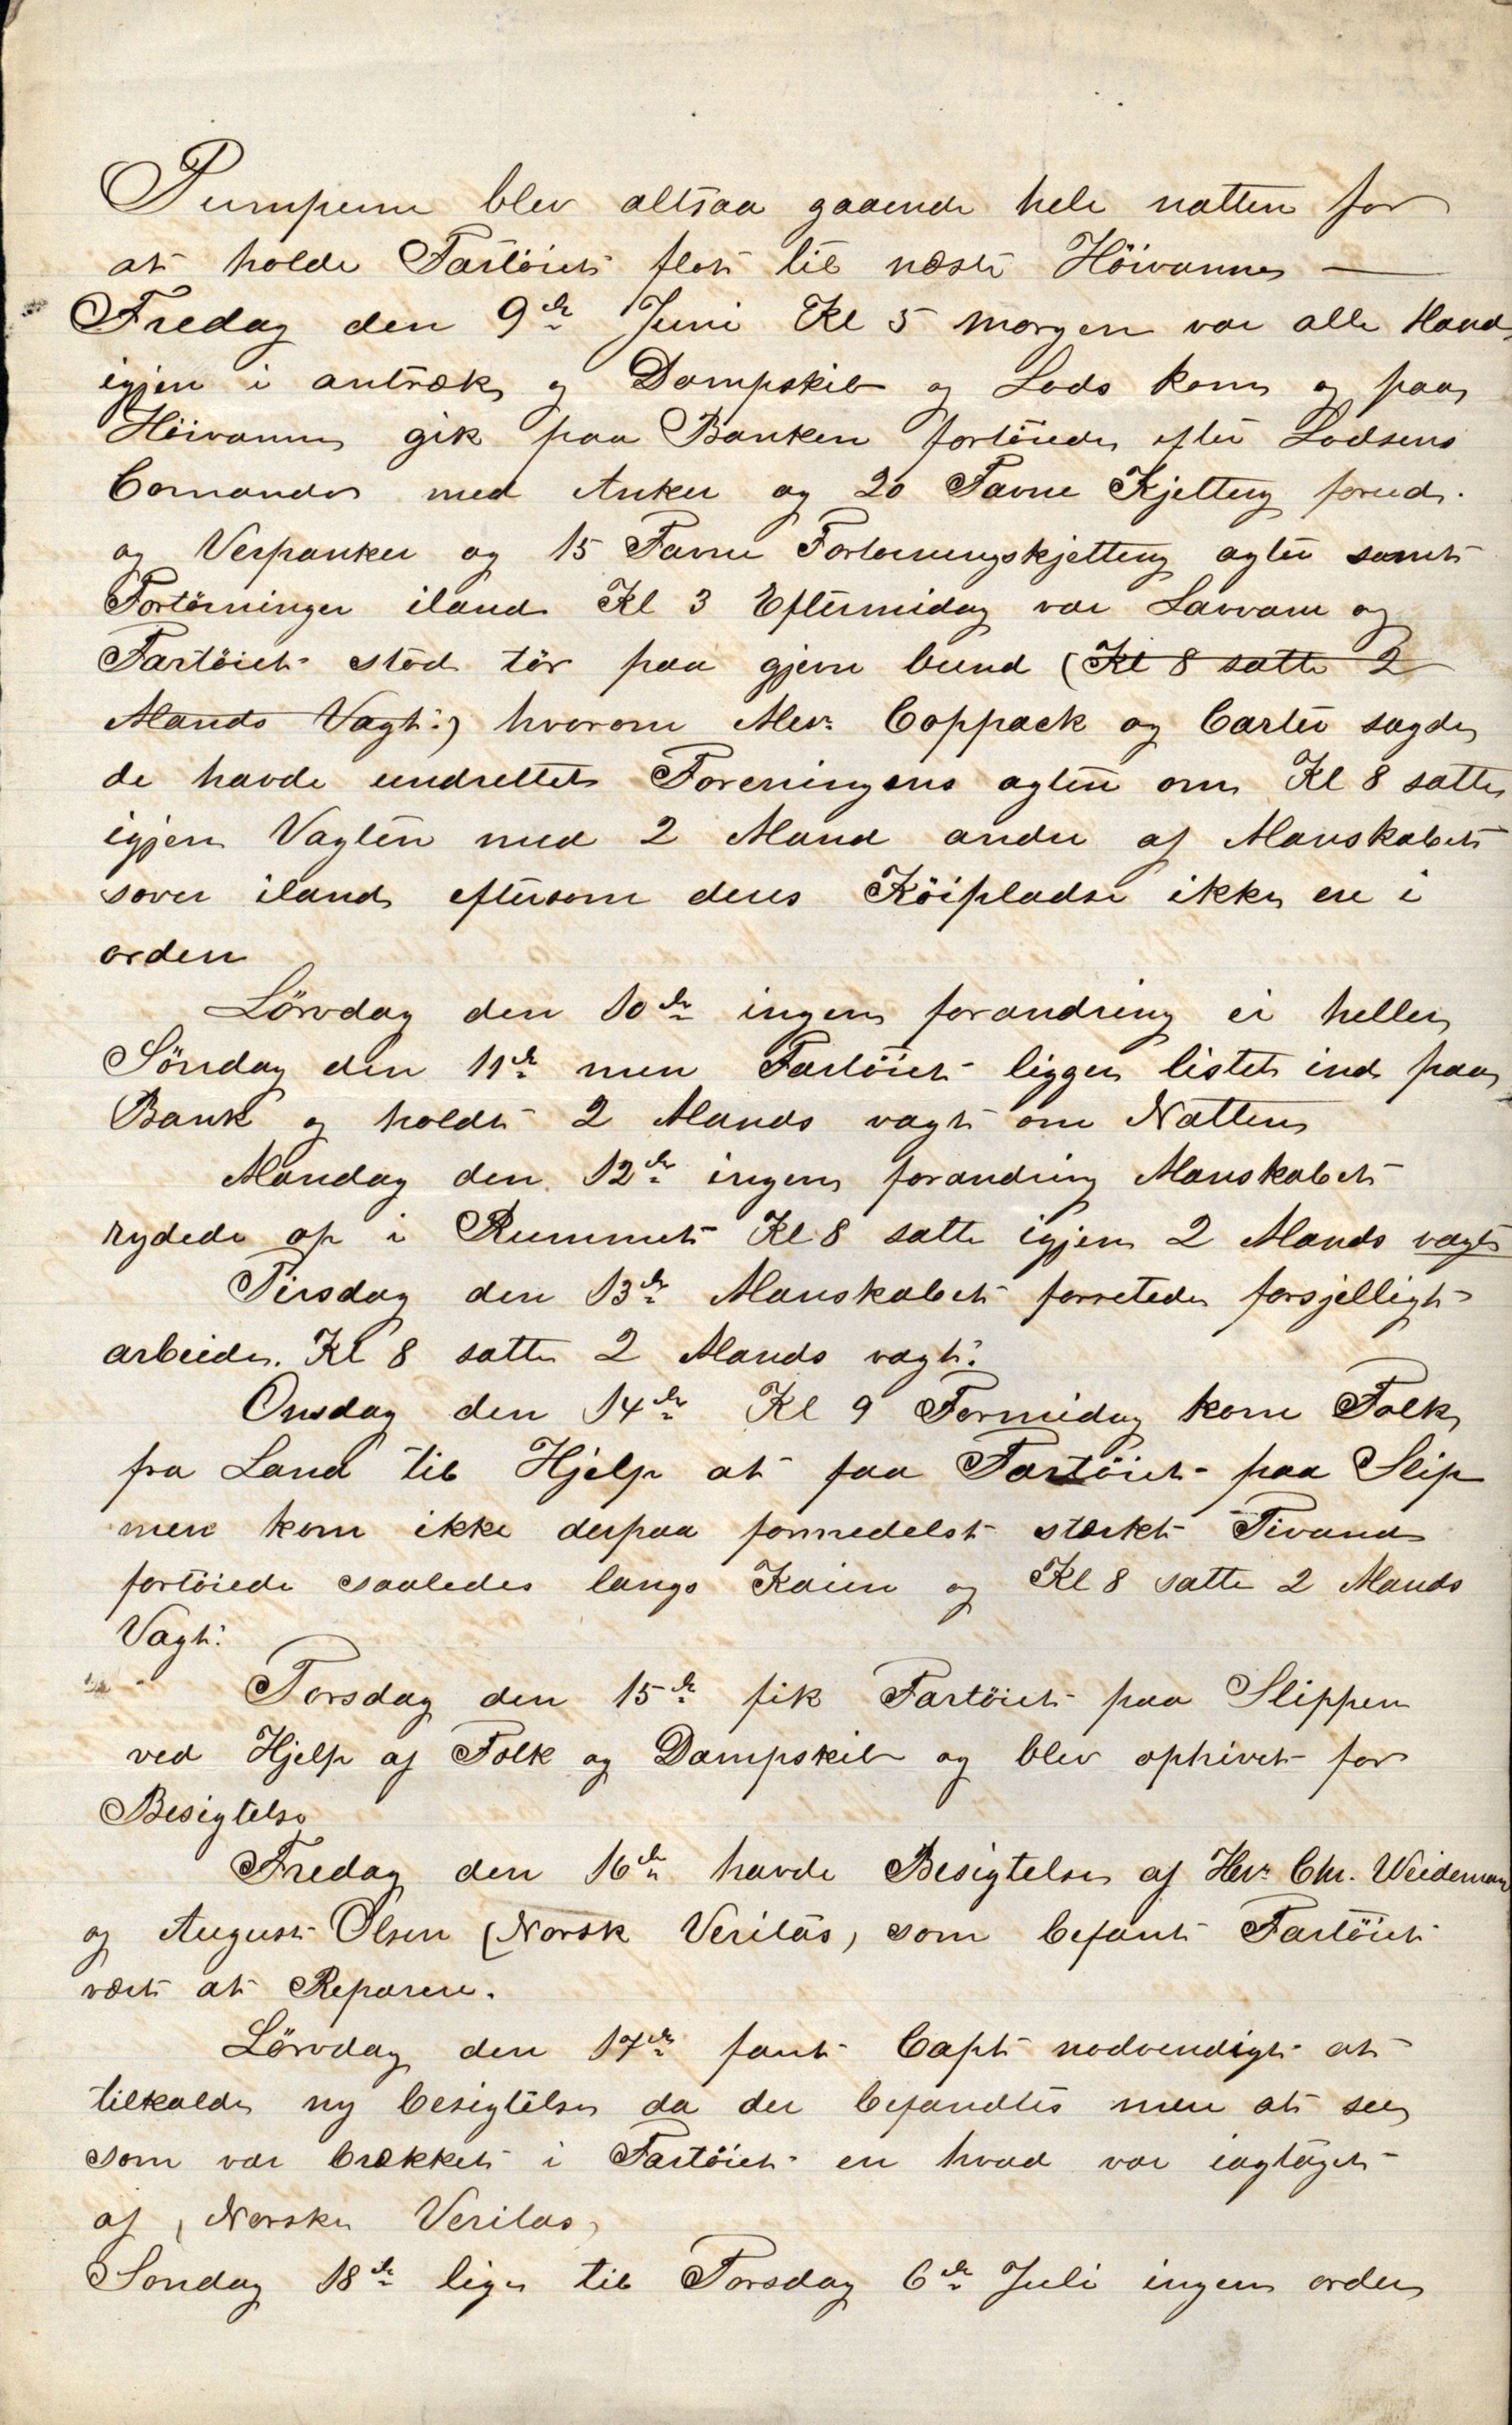 Pumperne blev altsaa gaaende hele natten for
at holde Fartöiet flot til næste Höivanne —
Fredag den 9de Juni Kl 5 morgen var alle Mand
igjen i antræk og Dampskib og Lods kom og paa
Höivanne gik paa Banken fortöiede efter Lodsens
Comando med Anker og 20 Favne Kjetting forud.
og Verpanker og 15 Favne Fortoiningskjetting agter samt
Fortöininger iland Kl 3 Eftermidag var Lavvann og
Fartöiet stod tör paa gjevn bund (Kl 8 satte 2
Mands Vagt.) hvorom Mesr. Coppack og Carter sagde
de havde undrettet Foreningens agten om Kl 8 satte
igjen Vagten med 2 Mand andre af Manskabet
sover iland eftersom deres Köipladse ikke ere i
orden
Lörvdag den 10de ingen forandring ei heller
Söndag den 11de men Fartöiet ligger listet ind paa
Bank og holdt 2 Mands vagt om Natten
Mandag den 12de ingen forandring Manskabet
rydede op i Rummet Kl 8 satte igjen 2 Mands vagt
Tirsdag den 13de Manskabet forretede forsjelligt
arbeide. Kl 8 satte 2 Mands vagt.
Onsdag den 14de Kl 9 Formidag kom Folk
fra Land til Hjelp at faa Fartöiet paa Slip
men kom ikke derpaa formedelst stærkt Tivand
fortöiede saaledes langs Kaien og Kl 8 satte 2 Mands
Vagt.
Torsdag den 15de fik Fartöiet paa Slippen
ved Hjelp af Folk og Dampskib og blev ophivet for
Besigtelse
Fredag den 16de havde Besigtelse af Her. Chr. Weideman
og August Olsen (Norsk Veritas) som befant Fartöiet
vært at Reparere.
Lörvdag den 17de fant Capt nodvendigt at
tilkalde ny besigtelse da der befandtes mere at see
som var brækket i Fartöiet en hvad var iagtaget
af (Norske Veritas)
Sondag 18de lige til Torsdag 6de Juli ingen orden